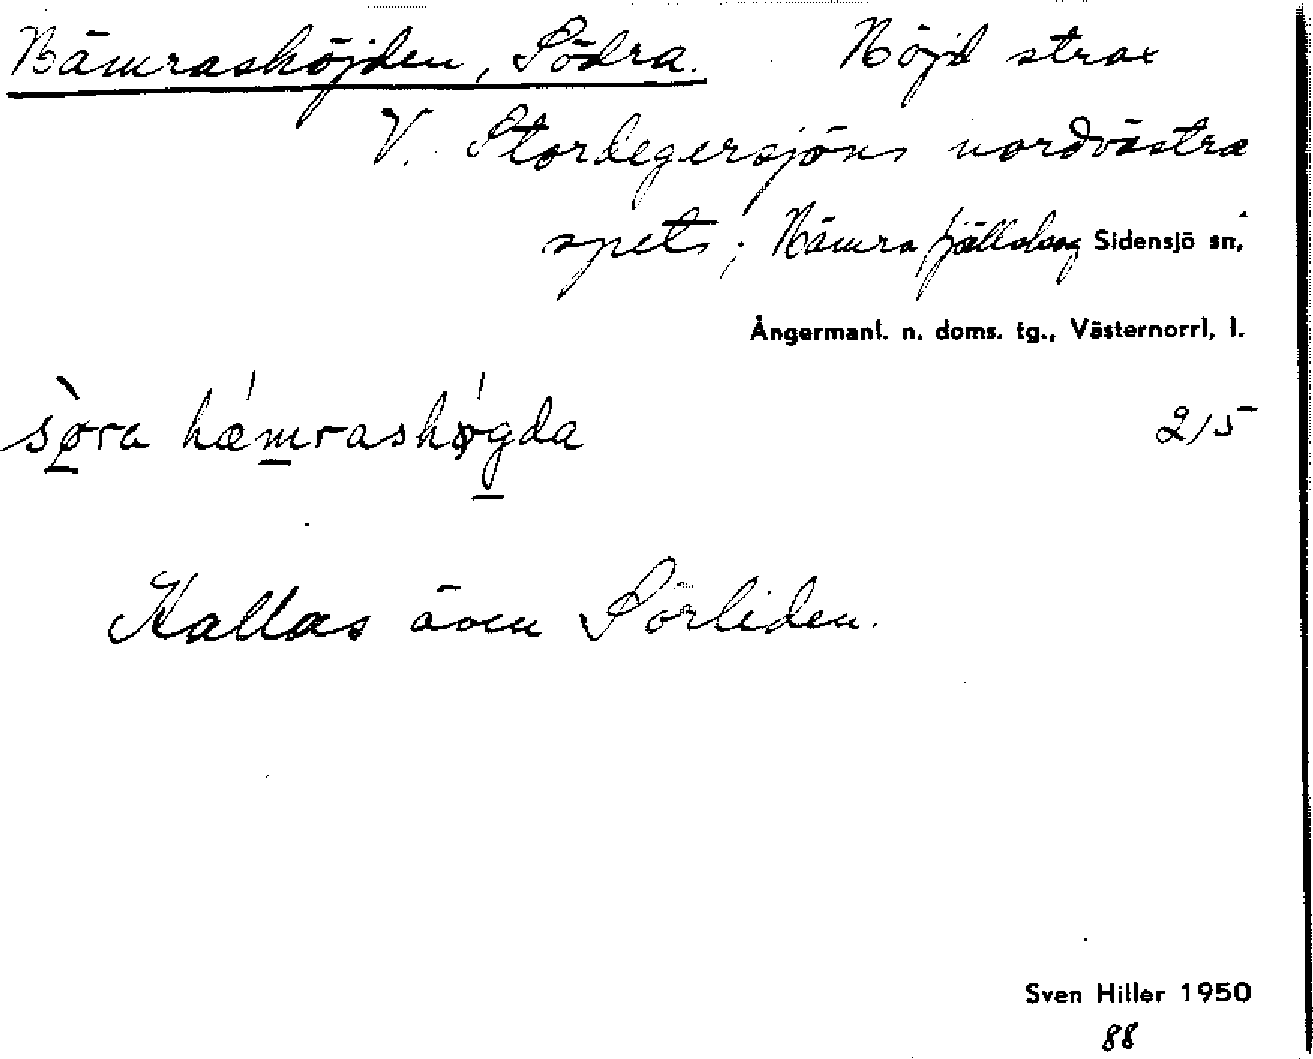 Hämrashöjden, Södra. Höjd strax
V. Stordegersjöns nordvästra
spets; Hämra fjällskog Sidensjö sn,
Ångermanl. n. doms. tg., Västernorrl. l.
sø̀ra hǽmrashǿgda 215
Kallas även Sörliden.
Sven Hiller 1950
88